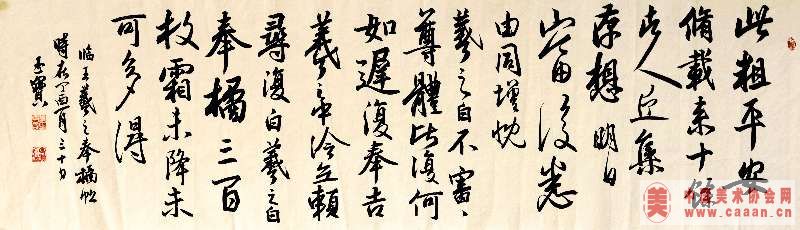 此粗平安
脩載来十餘
諸人近集
存想明日
當復悉
由同增慨
羲之白不審、
尊體比復何
如遲復奉告
羲之中冷無賴
尋復白羲之白
奉橘三百
枚霜未降未
可多得
临王羲之奉橘帖
時在丁酉月三十日
美
中国美术协会网
www.caaan.cn